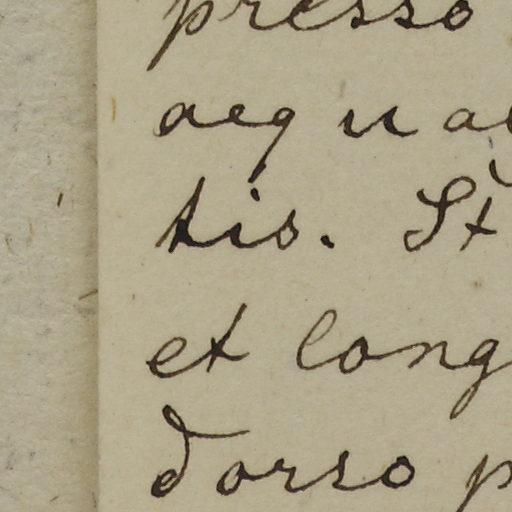 presso
aequal
tis. St
et long
dorso p